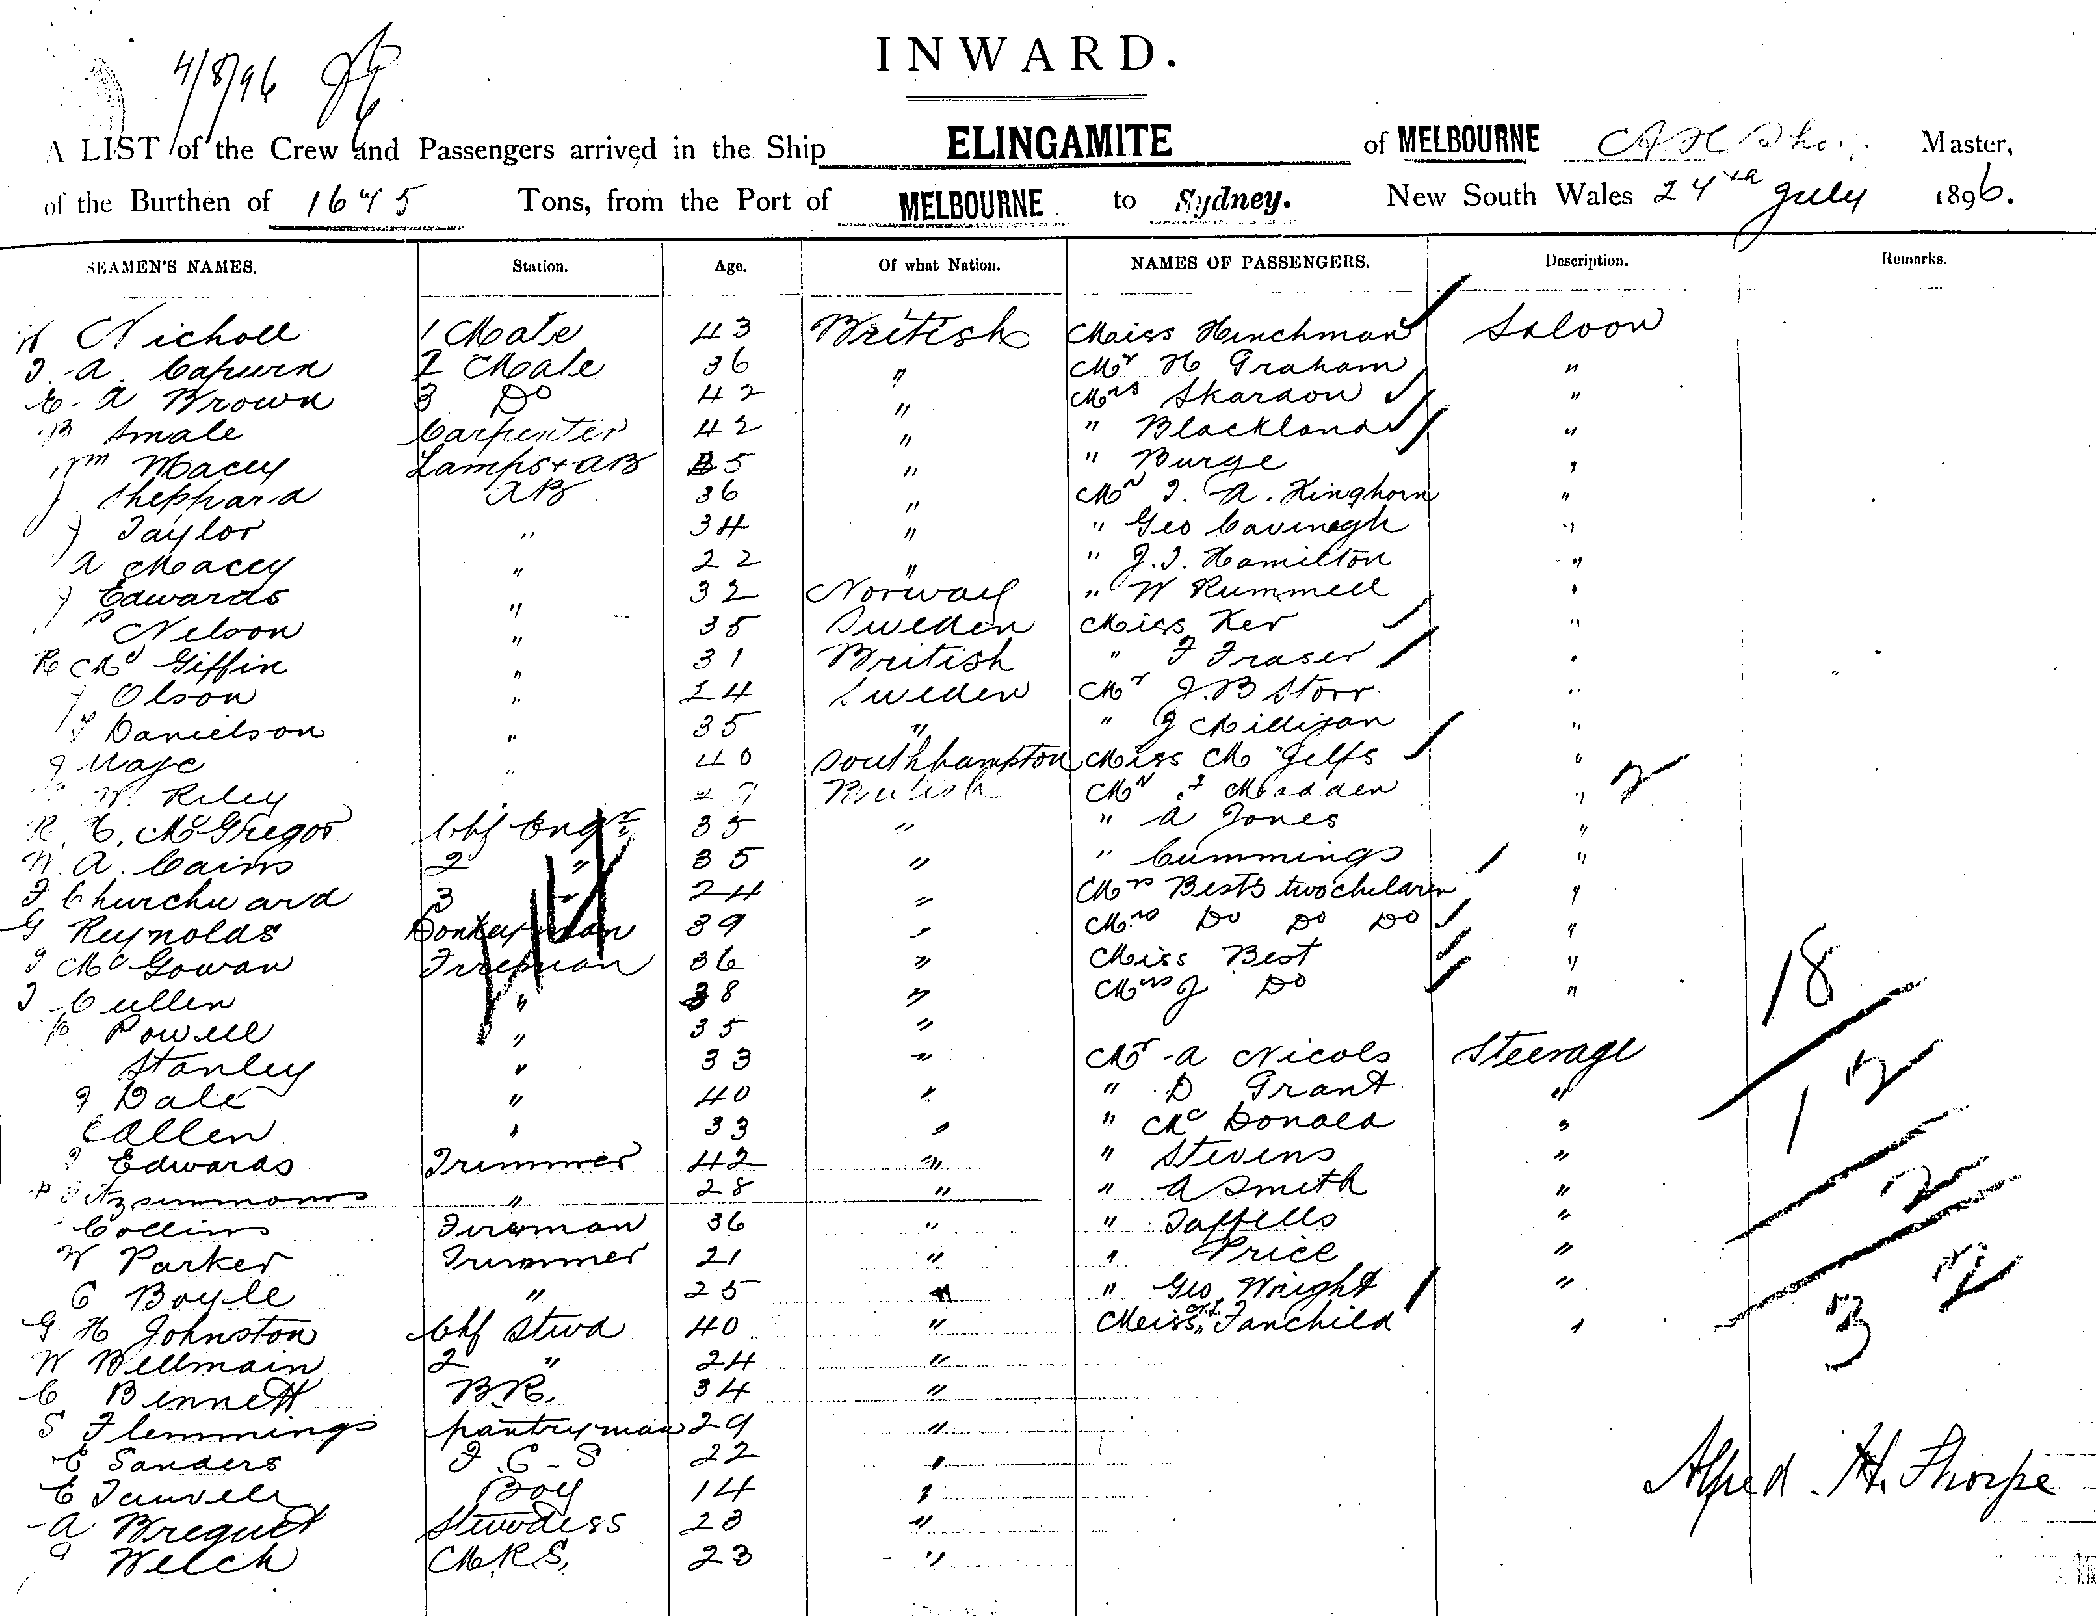 INWARD.
4/8/96
A LIST of the Crew and Passengers arrived in the Ship ELINGAMITE of MELBOURNE A H Thorpe Master,
of the Burthen of 1675 Tons, from the Port of MELBOURNE to Sydney. New South Wales 24th July 1896.
SEAMEN'S NAMES. Station. Age. Of what Nation. NAMES OF PASSENGERS. Description. Remarks.
Nicholl 1 Mate 43 British Miss Hinchman Saloon
A. Capurn 2 Mate 36 " Mr H Graham "
A Brown 3 Do 42 " Mrs Skardon "
Smale Carpenter 42 " " Blackland "
Wm Macey Lamps + AB 5 " " Burge "
J Sheppard AB 36 " Mr J. A. Kinghorn "
J Taylor " 34 " " Geo Cavinagh "
A Macey " 22 " " J. J. Hamilton "
J Edwards " 32 Norway " W Rummell "
P Nelson " 35 Sweden Miss Ker "
R McGiffin " 31 British " F Fraser "
J Olson " 24 Sweden Mr J. B Storr "
Danielson " 35 " " J Milligan "
" 40 Southhampton Miss M Jelfs "
W. Riley British Mr J Madden " 2
R. C. McGregor Chf Engr 35 " " A Jones "
W. A. Cairns 2 " 35 " " Cummings "
J Churchward 3 " 24 " Mrs Bests two children "
G Reynolds Donkeyman 39 " Mrs Do Do Do "
J McGowan Fireman 36 " Miss Best "
J Cullen " 38 " Mrs J Do "
Powell " 35 " 18
Stanley " 33 " Mr A Nicols Steerage
J Dale " 40 " " D Grant " 12
Allen " 33 " " McDonald "
J Edwards Trimmer 42 " " Stevens "
Fitzsimmons " 28 " " A Smith " 2
Collins Fireman 36 " " Taffells "
W Parker Trimmer 21 " " Price "
C Boyle " 25 " " Geo Wright "
G H Johnston Chf Stwd 40 " Miss Fanchild " 32
W Bellmain 2 " 24 "
C Bennett BR. 34 "
S Flemmings pantryman 29 "
E Sanders F. C. S 22 "
E Boy 14 "
A Breguet Stewdess 23 "
Welch M.R.S. 23 "
Alfred. H. Thorpe